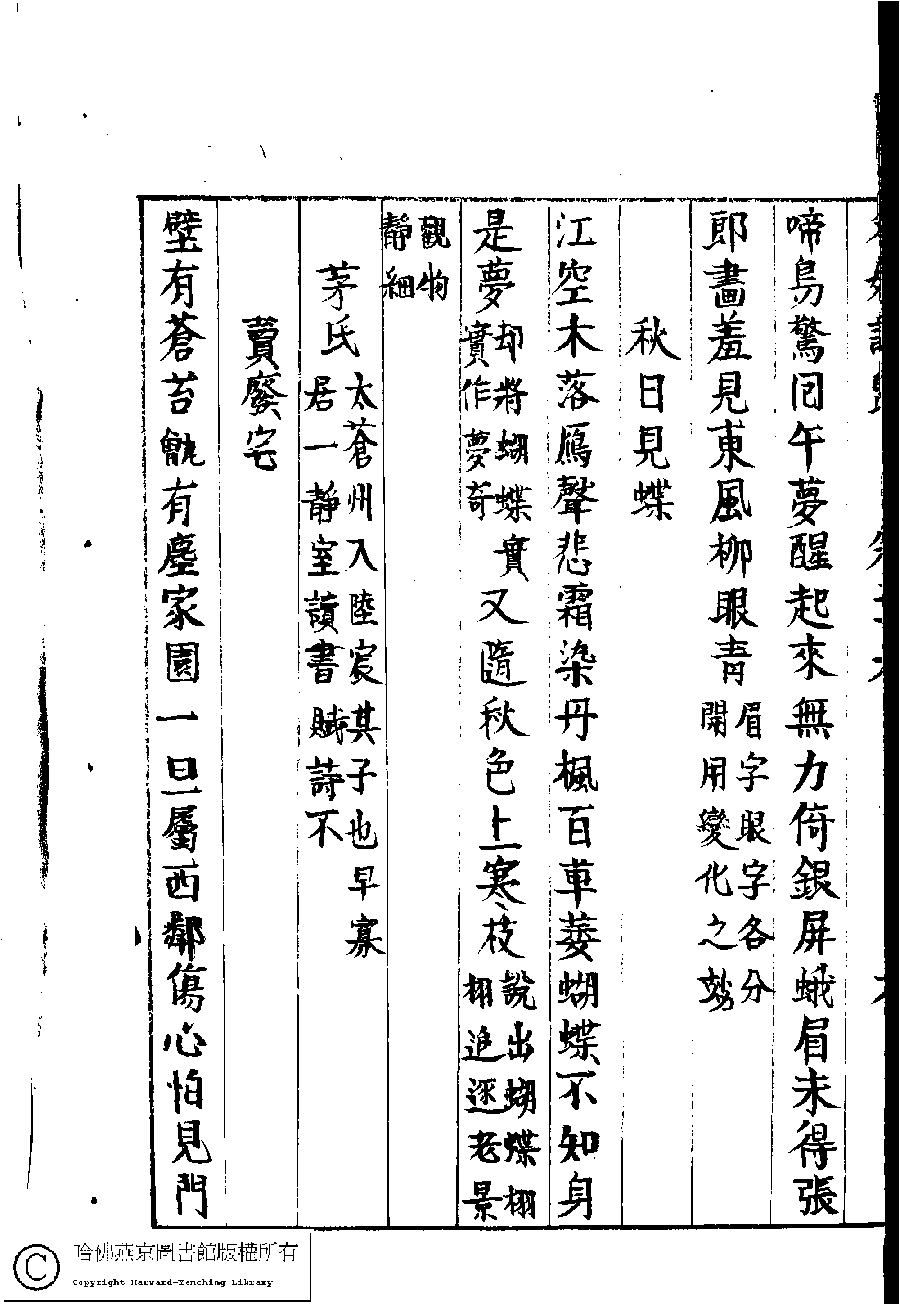 啼鳥驚囘午夢醒起來無力倚銀屏蛾眉未得張
郎畫羞見東風柳眼青眉字眼字各分開用變化之妙
秋日見蝶
江空木落鴈聲悲霜染丹楓百草萎蝴蝶不知身
是夢却將蝴蝶實實作夢奇又隨秋色上寒枝說出蝴蝶栩栩追逐老景
觀物靜細
茅氏太蒼州入陸宸其子也早寡居一靜室讀書賦詩不
賣廢宅
壁有蒼苔甑有塵家園一旦屬西鄰傷心怕見門
© 哈佛燕京圖書館版權所有
Copyright Harvard-Yenching Library